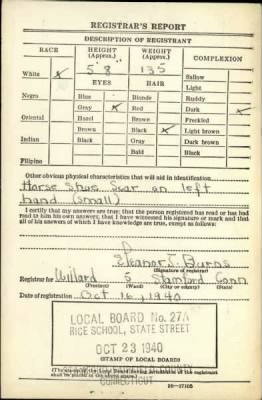 REGISTRAR'S REPORT
DESCRIPTION OF REGISTRANT
RACE HEIGHT (Approx.) WEIGHT (Approx.) COMPLEXION
White x 5' 8" 135 Sallow
EYES HAIR Light
Negro Blue Blonde Ruddy
Gray x Red Dark x
Oriental Hazel Brown Freckled
Brown Black x Light brown
Indian Black Gray Dark brown
Bald Black
Filipino
Other obvious physical characteristics that will aid in identification
Horse Shoe Scar on left
hand (small)
I certify that my answers are true; that the person registered has read or has had
read to him his own answers; that I have witnessed his signature or mark and that
all of his answers of which I have knowledge are true, except as follows:
Eleanor J. Burns
(Signature of registrar)
Registrar for Willard 5 Stamford Conn
(Precinct) (Ward) (City or county) (State)
Date of registration Oct 16, 1940
LOCAL BOARD No. 27A
RICE SCHOOL, STATE STREET
OCT 23 1940
(STAMP OF LOCAL BOARD)
(The stamp of the Local Board having jurisdiction of the registrant
shall be placed in the above space)
COUNTY
CONNECTICUT
16—17105